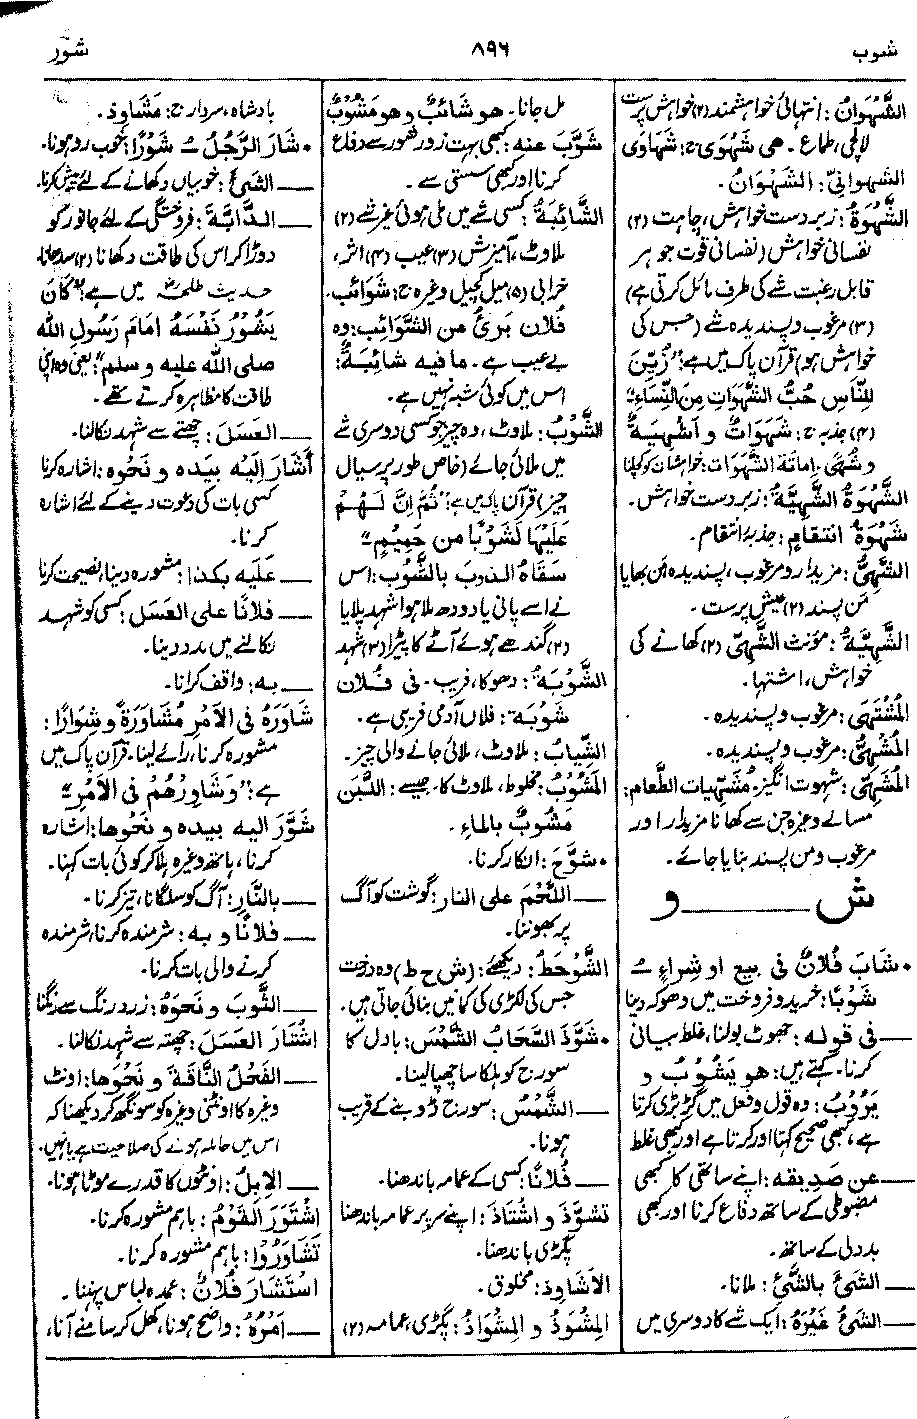 شوب
۸۹۶
شوّر
الشَّهْوَانُ: انتہائی خواہشمند (۲) خواہش پرست
لالچی، طماع۔ ھی شَهْوَى ج: شَهَاوَى
الشهوانِیّ: الشَهْوَانُ۔
الشَّهْوَةُ: زبردست خواہش، چاہت (۲)
نفسانی خواہش (نفسانی قوت جو ہر
قابل رغبت شے کی طرف مائل کرتی ہے)
(۳) مرغوب و پسندیدہ شے (جس کی
خواہش ہو) قرآن پاک میں ہے: "زُيِّنَ
لِلنَّاسِ حُبُّ الشَّهَوَاتِ مِنَ النِّسَاءِ"
(۴) جذبہ ج: شَهَوَاتٌ و اَشْهِيَةٌ
و شُهًى۔ اِمَاتَةُ الشَّهَوَات: خواہشات کو کچلنا
الشَّهْوَةُ الشَّهِيَّةُ: زبردست خواہش۔
شَهْوَةُ انتقامٍ: جذبۂ انتقام۔
الشَّهِىُّ: مزیدار و مرغوب، پسندیدہ، من بھایا
من پسند (۲) عیش پرست۔
الشَّهِيَّةُ: مؤنث الشَّهِىّ (۲) کھانے کی
خواہش، اشتہا۔
المُشْتَهَى: مرغوب و پسندیدہ۔
المُشْهِىُّ: مرغوب و پسندیدہ۔
المُشَهِّى: شہوت انگیز۔ مُشَهِّيات الطَّعام:
مسالے وغیرہ جن سے کھانا مزیدار اور
مرغوب و من پسند بنایا جائے۔
ش ــــــ و
• شَابَ فُلَانٌ فی بیعٍ او شِراءٍ ــُـ
شَوْبًا: خرید و فروخت میں دھوکہ دینا
ــ فی قوله: جھوٹ بولنا، غلط بیانی
کرنا۔ کہتے ہیں: هو يَشُوبُ و
يَرُوْبُ: وہ قول و فعل میں گڑبڑی کرتا
ہے، کبھی صحیح کہتا اور کرتا ہے اور کبھی غلط
ــ عن صَدِيقه: اپنے ساتھی کا کبھی
مضبوطی کے ساتھ دفاع کرنا اور کبھی
بددلی کے ساتھ۔
ــ الشئَ بالشّئِ: ملانا۔
ــ الشئُ غَيْرَهُ: ایک شے کا دوسری میں
مل جانا۔ هو شائبٌ و هو مَشُوْبٌ
شَوَّبَ عنه: کبھی بہت زور شور سے دفاع
کرنا اور کبھی سستی سے۔
الشَّائِبَةُ: کسی شے میں ملی ہوئی غیر شے (۲)
ملاوٹ، آمیزش (۳) عیب (۴) اثر،
خرابی (۵) میل کچیل وغیرہ ج: شَوَائب۔
فُلان بَرِیٌ من الشَّوَائِب: وہ
بے عیب ہے۔ ما فيه شائبةٌ:
اس میں کوئی شبہ نہیں ہے۔
الشَّوْبُ: ملاوٹ، وہ چیز جو کسی دوسری شے
میں ملائی جائے (خاص طور پر سیال
چیز) قرآن پاک میں ہے: "ثُمَّ إِنَّ لَهُمْ
عَلَيْهَا لَشَوْبًا من حَمِيْمٍ"
سَقَاهُ الذوبَ بالشَّوْب: اس
نے اسے پانی یا دودھ ملا ہوا شہد پلایا
(۲) گندھے ہوئے آٹے کا پیڑا (۳) شہد
الشَّوْبَةُ: دھوکا، فریب۔ فی فُلان
شَوْبَة: فلاں آدمی فریبی ہے۔
الشِّيابُ: ملاوٹ، ملائی جانے والی چیز۔
المَشُوْبُ: مخلوط، ملاوٹ کا۔ جیسے: اللَّبَن
مَشُوبٌ بالماءِ۔
• شوَّحَ: انکار کرنا۔
ــ اللَّحْمَ علی النار: گوشت کو آگ
پر بھوننا۔
الشَّوْحَطُ: دیکھئے: (ش ح ط) وہ درخت
جس کی لکڑی کی کمانیں بنائی جاتی ہیں۔
• شَوَّذَ السَّحَابُ الشَّمْسَ: بادل کا
سورج کو ہلکا سا چھپا لینا۔
ــ الشَّمْسُ: سورج ڈوبنے کے قریب
ہونا۔
ــ فُلَانًا: کسی کے عمامہ باندھنا۔
تَشَوَّذَ و اشْتَاذَ: اپنے سر پر عمامہ باندھنا
پگڑی باندھنا۔
الاَشَاوِذ: مخلوق۔
المِشْوَذُ و المِشْوَاذُ: پگڑی، عمامہ (۲)
بادشاہ، سردار ج: مَشَاوِذ۔
• شَارَ الرَّجُلُ ــُـ شَوْرًا: خوب رو ہونا۔
ــ الشئَ: خوبیاں دکھانے کے لئے پیش کرنا۔
ــ الدَّابَّةَ: فروختگی کے لئے جانور کو
دوڑا کر اس کی طاقت دکھانا (۲) سدھانا۔
حدیث طلحہؓ میں ہے: "كَانَ
يَشُوْرُ نَفْسَهُ اَمَامَ رَسُولِ الله
صلى الله عليه وسلم" یعنی وہ اپنی
طاقت کا مظاہرہ کرتے تھے۔
ــ العَسَلَ: چھتے سے شہد نکالنا۔
أَشَارَ إِلَيْهِ بِيَدِه و نَحْوِه: اشارہ کرنا
کسی بات کی دعوت دینے کے لئے اشارہ
کرنا۔
ــ عَلَيه بكذا: مشورہ دینا، نصیحت کرنا
ــ فلانًا على العَسَل: کسی کو شہد
نکالنے میں مدد دینا۔
ــ به: واقف کرانا۔
شَاوَرَهُ فى الاَمْرِ مُشَاوَرَةً و شِوَارًا:
مشورہ کرنا، رائے لینا۔ قرآن پاک میں
ہے: "وَشَاوِرْهُمْ فِى الاَمْرِ"
شَوَّرَ اليه بيده و نَحْوِها: اشارہ
کرنا، ہاتھ وغیرہ ہلا کر کوئی بات کہنا۔
ــ بالنَّارِ: آگ کو سلگانا، تیز کرنا۔
ــ فلانًا و به: شرمندہ کرنا، شرمندہ
کرنے والی بات کرنا۔
ــ الثَّوبَ و نَحْوَهُ: زرد رنگ سے رنگنا
اشْتَارَ العَسَلَ: چھتہ سے شہد نکالنا۔
ــ الفَحْلُ النَّاقَةَ و نَحْوَها: اونٹ
وغیرہ کا اونٹنی وغیرہ کو سونگھ کر دیکھنا کہ
اس میں حاملہ ہونے کی صلاحیت ہے یا نہیں۔
ــ الإبِلُ: اونٹوں کا قدرے موٹا ہونا۔
اشْتَوَرَ القَوْمُ: باہم مشورہ کرنا۔
تَشَاوَرُوْا: باہم مشورہ کرنا۔
اسْتَشَارَ فُلَانٌ: عمدہ لباس پہننا۔
ــ اَمْرُهُ: واضح ہونا، کھل کر سامنے آنا،